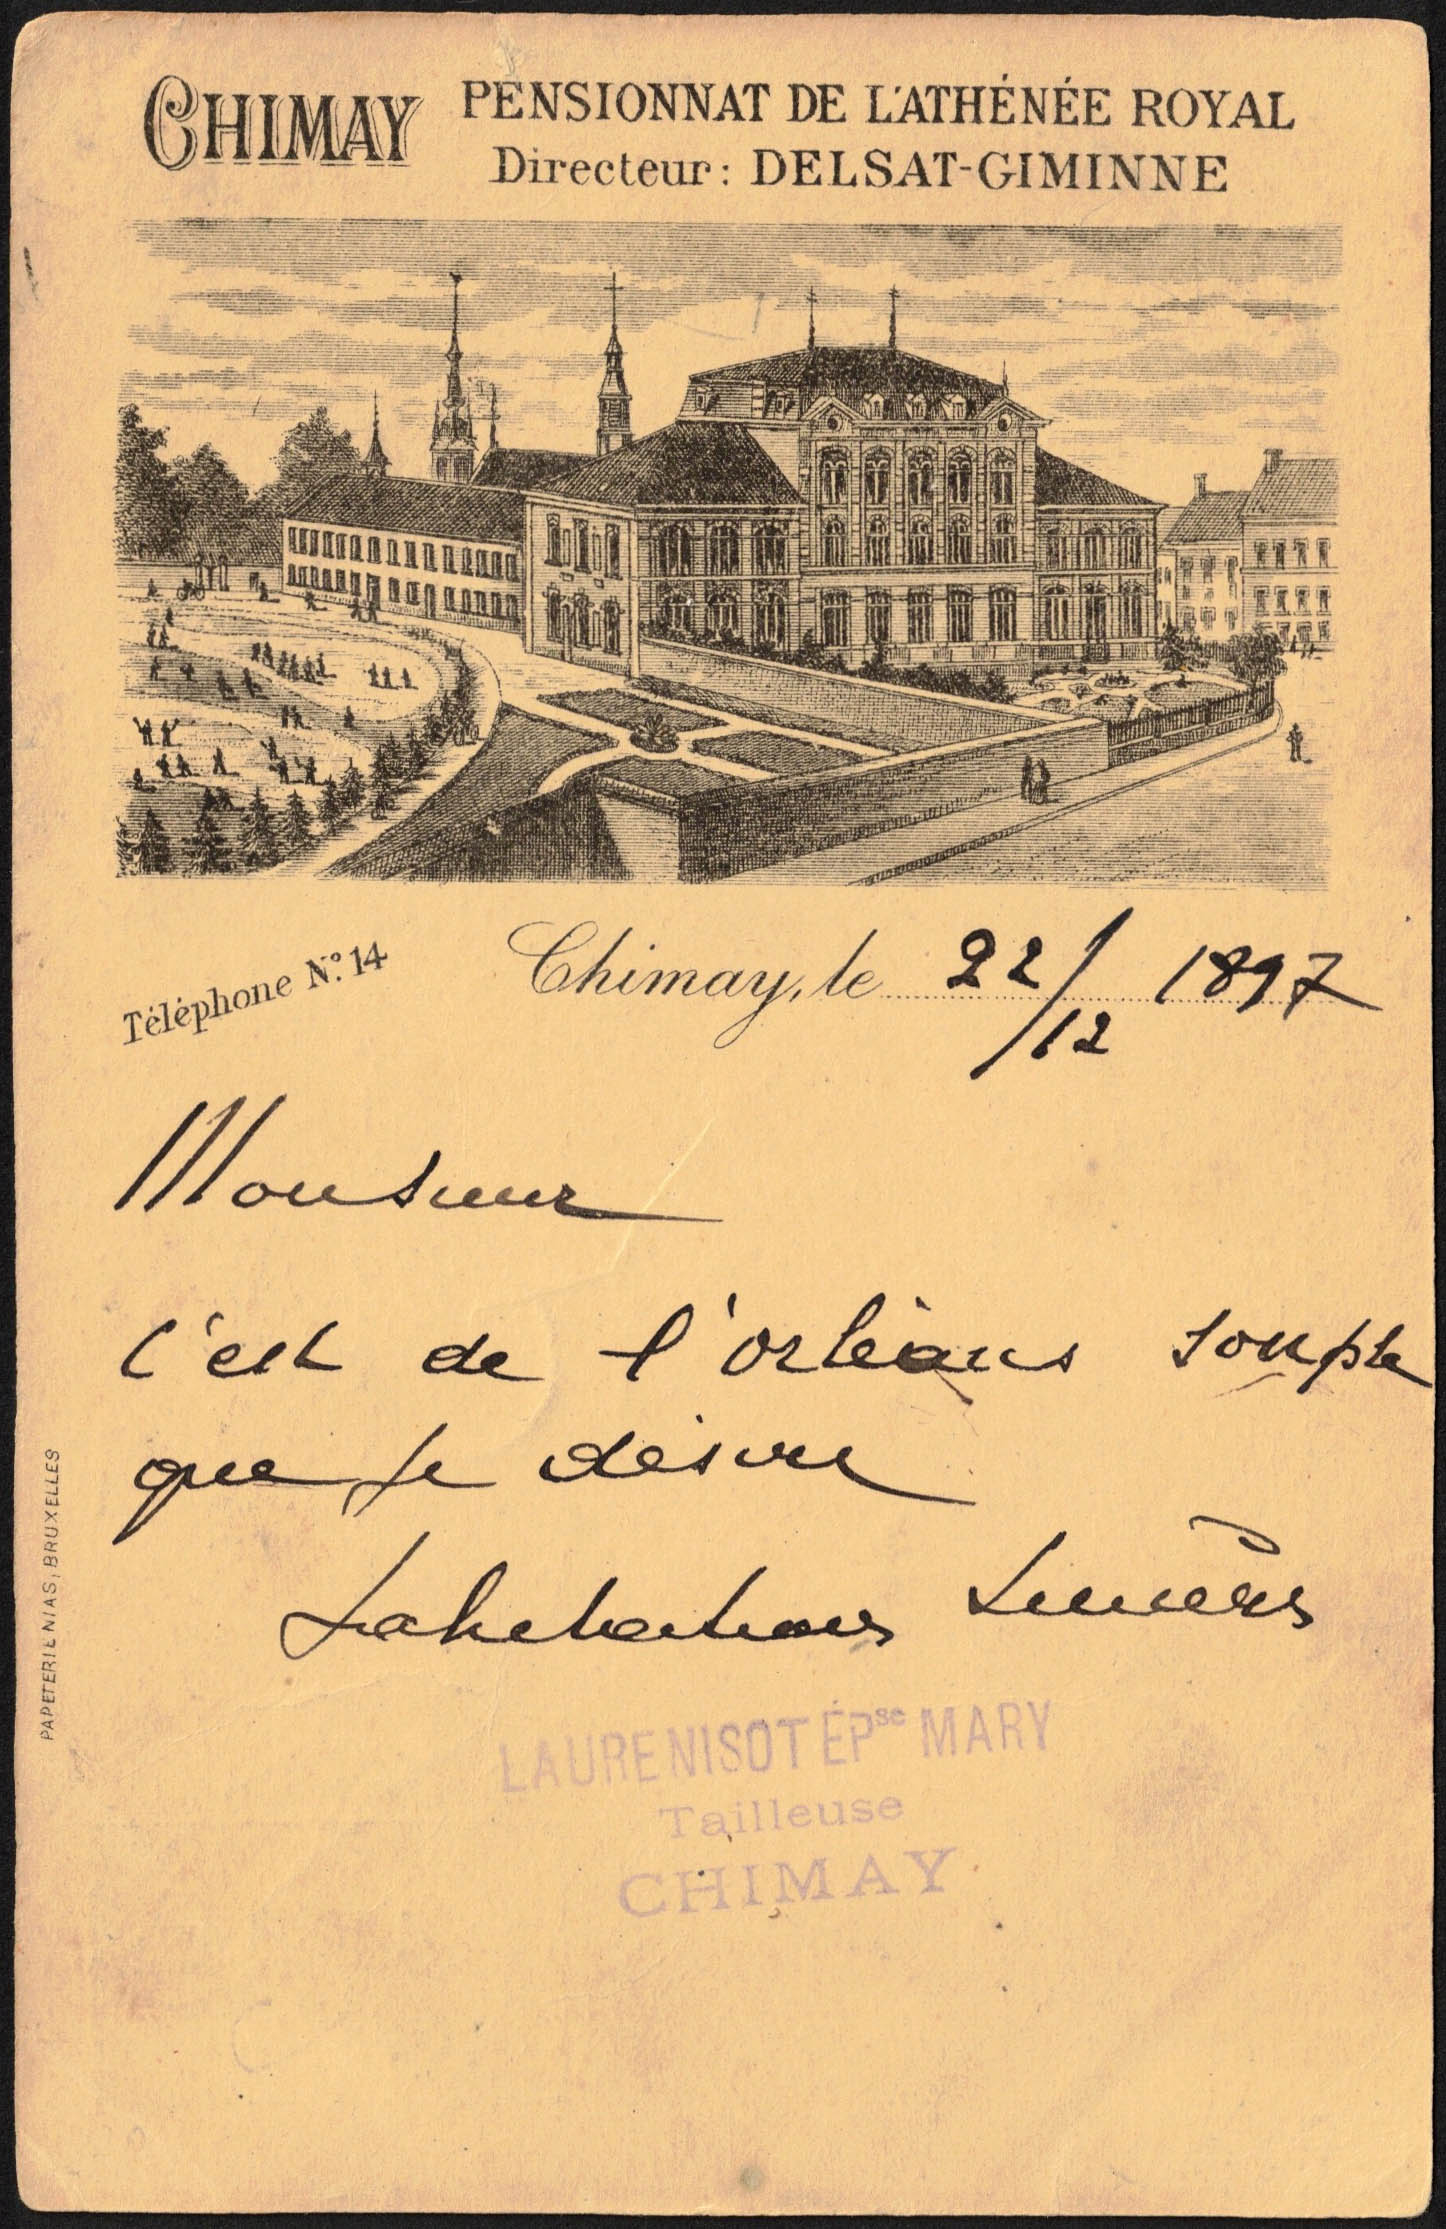 CHIMAY PENSIONNAT DE L'ATHÉNÉE ROYAL
Directeur: DELSAT-GIMINNE
Téléphone N.º 14
Chimay, le 22/12 1897
Monsieur
C'est de l'orléans souple
que je désire
Salutations sincères
LAURE NISOT ÉPse MARY
Tailleuse
CHIMAY
PAPETERIE NIAS, BRUXELLES